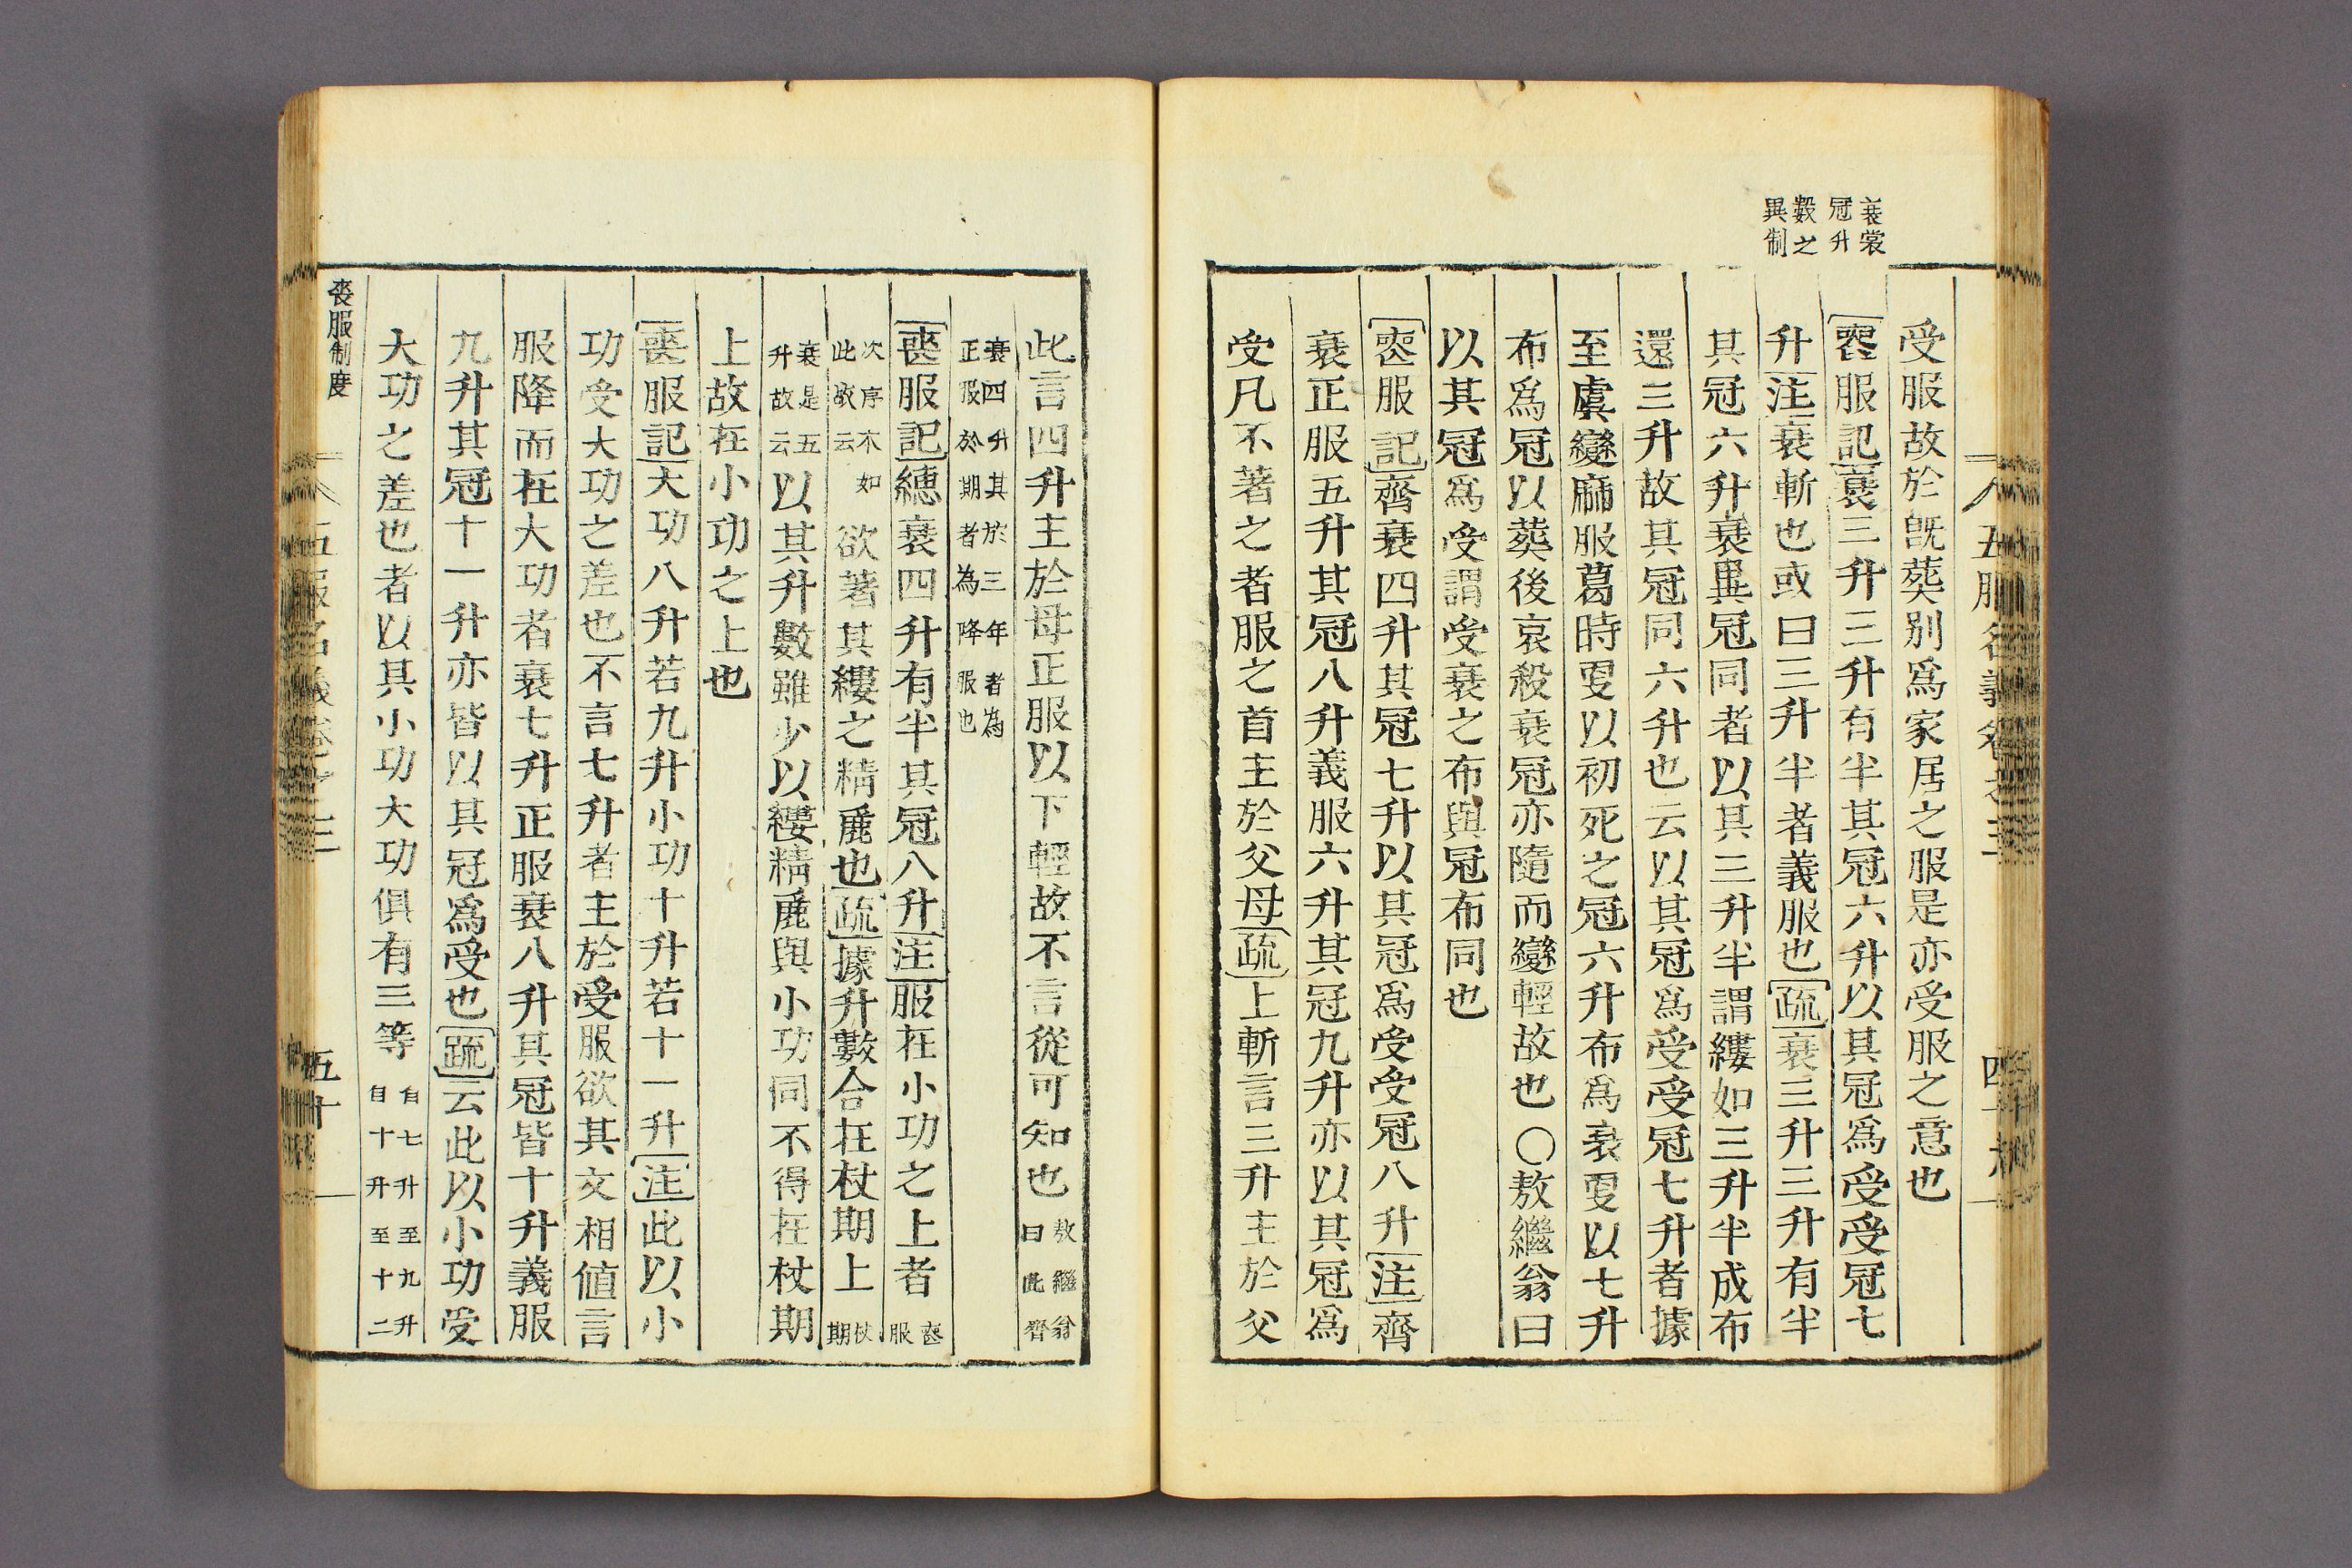 衰裳
冠升
數之
異制
受服故於旣葬别爲家居之服是亦受服之意也
喪服記衰三升三升有半其冠六升以其冠爲受受冠七
升注衰斬也或曰三升半者義服也疏衰三升三升有半
其冠六升衰異冠同者以其三升半謂縷如三升半成布
還三升故其冠同六升也云以其冠爲受受冠七升者據
至虞變麻服葛時更以初死之冠六升布爲衰更以七升
布爲冠以葬後哀殺衰冠亦隨而變輕故也〇敖繼翁曰
以其冠爲受謂受衰之布與冠布同也
喪服記齊衰四升其冠七升以其冠爲受受冠八升注齊
衰正服五升其冠八升義服六升其冠九升亦以其冠爲
受凡不著之者服之首主於父母疏上斬言三升主於父
此言四升主於母正服以下輕故不言從可知也敖繼翁
曰此齊
衰四升其於三年者為
正服於期者為降服也
喪服記繐衰四升有半其冠八升注服在小功之上者喪
服
次序不如
此敬云欲著其縷之精麄也疏據升數合在杖期上杖
期
衰是五
升故云以其升數雖少以縷精麄與小功同不得在杖期
上故在小功之上也
喪服記大功八升若九升小功十升若十一升注此以小
功受大功之差也不言七升者主於受服欲其文相値言
服降而在大功者衰七升正服衰八升其冠皆十升義服
九升其冠十一升亦皆以其冠爲受也疏云此以小功受
大功之差也者以其小功大功俱有三等自七升至九升
自十升至十二
喪服制度
五服名義卷之三
五十